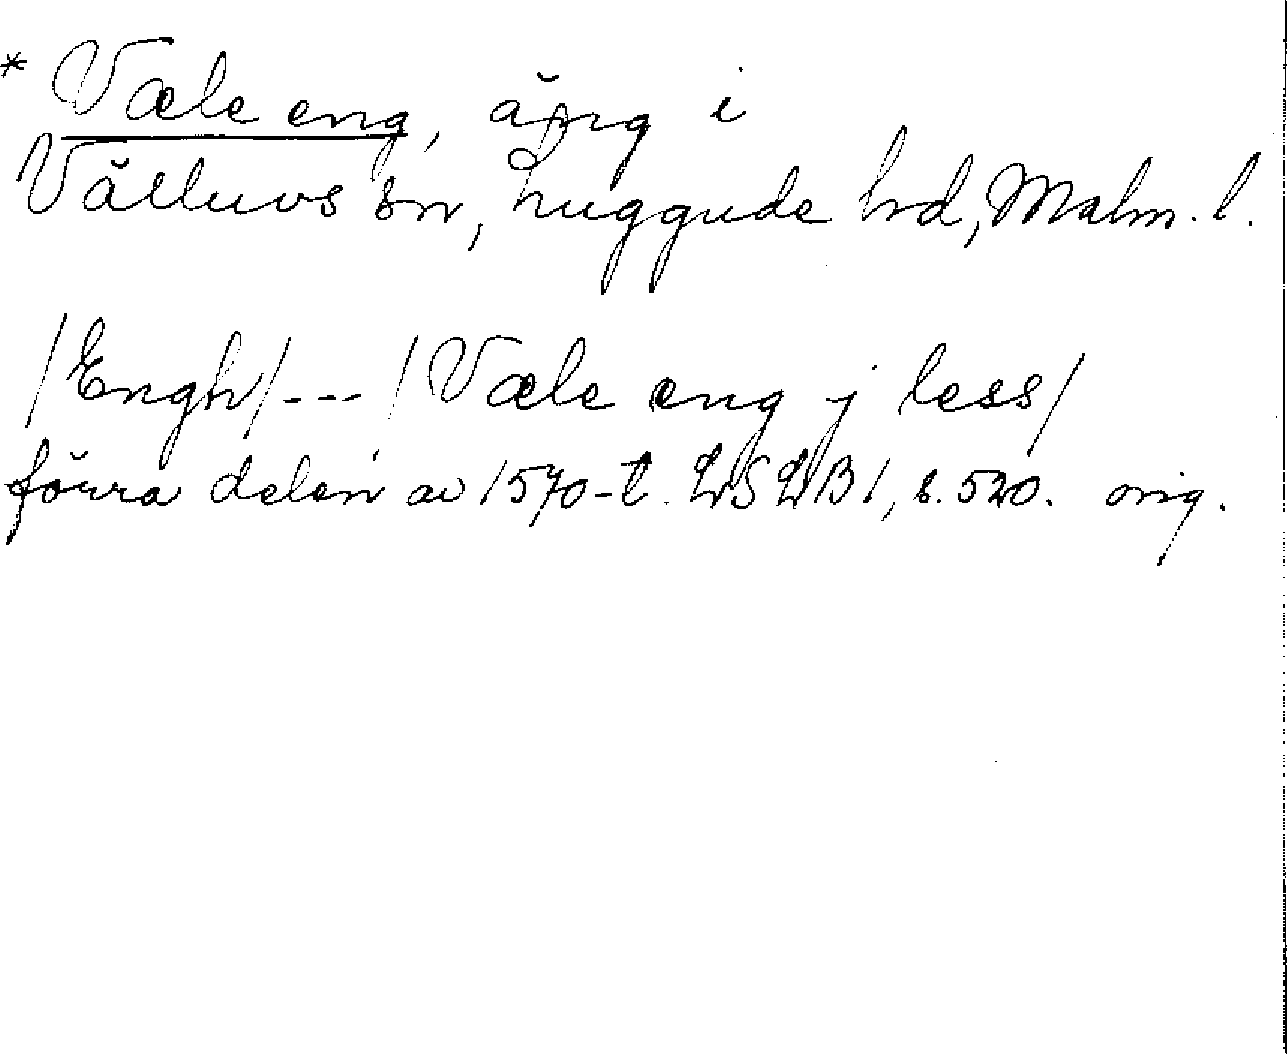 * Væle eng, äng i
Välluvs sn, Luggude hrd, Malm. l.
/Engh/ --- /Væle eng j less/
förra delen av 1570-t. LSLB 1, s. 520. orig.